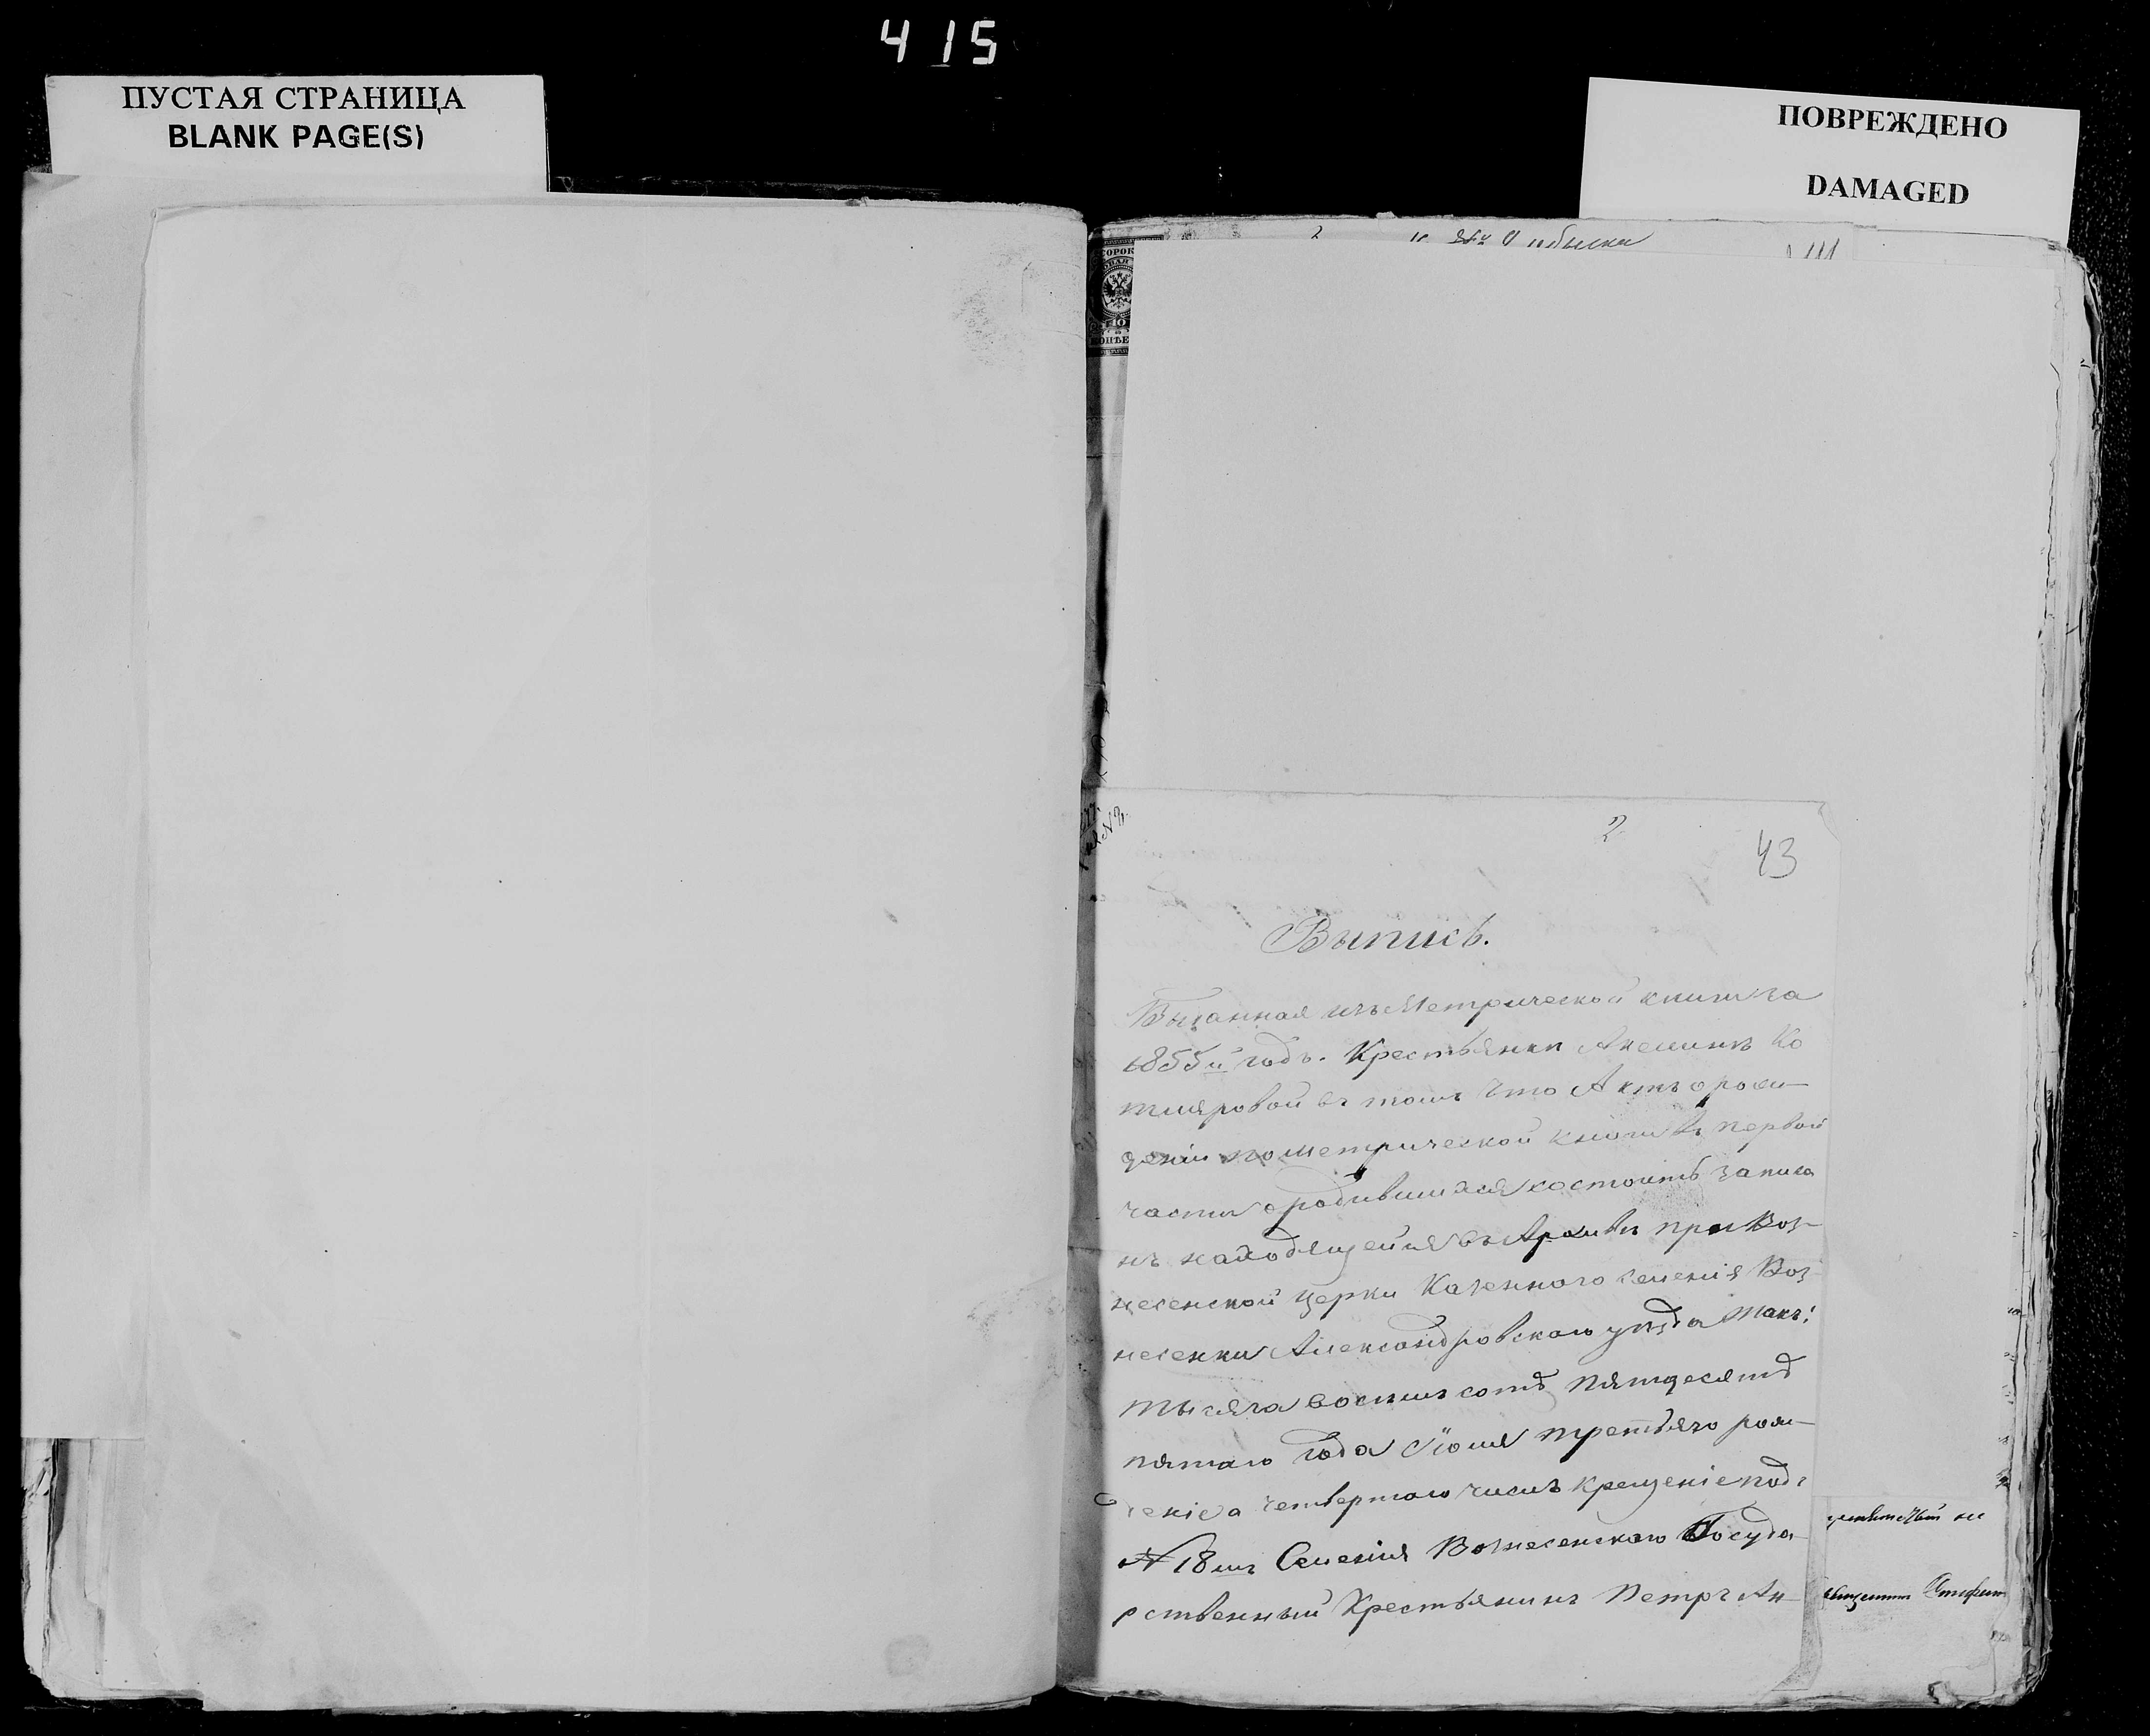 415
ПУСТАЯ СТРАНИЦА
BLANK PAGE(S)
ПОВРЕЖДЕНО
DAMAGED
2
43
Выпись.
Выданная изъ Метрической книги за
1855й годъ. Крестьянки Акелинѣ Ко
тляровой въ томъ что Актъ о рож-
деніи по метрической книги въ первой
части о родившихся состоитъ записа
нъ находящейся въ Архивѣ при Воз-
несенской церкви Казенного селенія Воз-
несенки Александровского уѣзда такъ:
тысяча восемь сотъ пятдесятъ
пятаго года Іюня третьяго рож-
деніе а четвертого числа крещеніе подъ
№ 18мъ Селенія Вознесенского Госуда
рственный Крестьянинъ Петръ Ан-